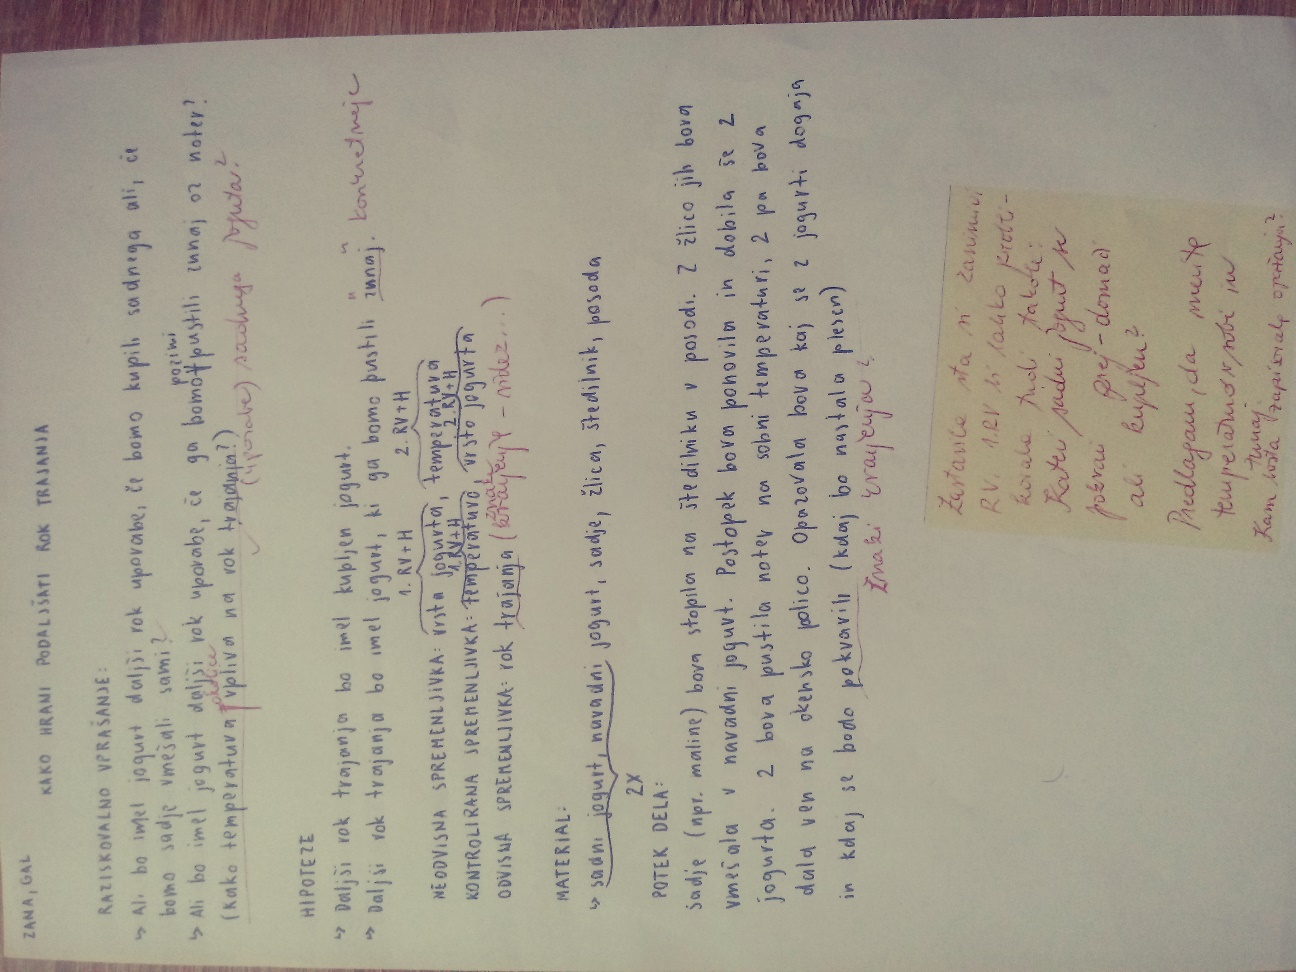 ZANA, GAL
KAKO HRANI PODALJŠATI ROK TRAJANJA
RAZISKOVALNO VPRAŠANJE:
↳ Ali bo imel jogurt daljši rok uporabe, če bomo kupili sadnega ali, če
bomo sadje vmešali sami?
↳ Ali bo imel jogurt daljši rok uporabe, če ga bomo pozimi pustili zunaj oz noter?
(Kako temperatura vpliva na rok trajanja?)
(uporabe) sadnega jogurta?
HIPOTEZE
↳ Daljši rok trajanja bo imel kupljen jogurt.
↳ Daljši rok trajanja bo imel jogurt, ki ga bomo pustili "zunaj". konkretneje
1. RV+H 2. RV+H
NEODVISNA SPREMENLJIVKA: vrsta jogurta, temperatura
1. RV+H 2. RV+H
KONTROLIRANA SPREMENLJIVKA: temperatura, vrsta jogurta
ODVISNA SPREMENLJIVKA: rok trajanja (znaki kvarjenja - videz...)
MATERIAL:
↳ sadni jogurt, navadni jogurt, sadje, žlica, štedilnik, posoda
2X
POTEK DELA:
sadje (npr. maline) bova stopila na štedilniku v posodi. Z žlico jih bova
vmešala v navadni jogurt. Postopek bova ponovila in dobila še 2
jogurta. 2 bova pustila noter na sobni temperaturi, 2 pa bova
dala ven na okensko polico. Opazovala bova kaj se z jogurti dogaja
in kdaj se bodo pokvarili (kdaj bo nastala plesen)
znaki kvarjenja?
Zastavila sta si zanimivi
RV. 1. RV bi lahko
tudi takole:
Kateri sadni jogurt se
pokvari prej - domači
ali kupljen?
Predlagam, da merite
temperaturo v sobi in
zunaj.
Kam bosta zapisovala opažanja?